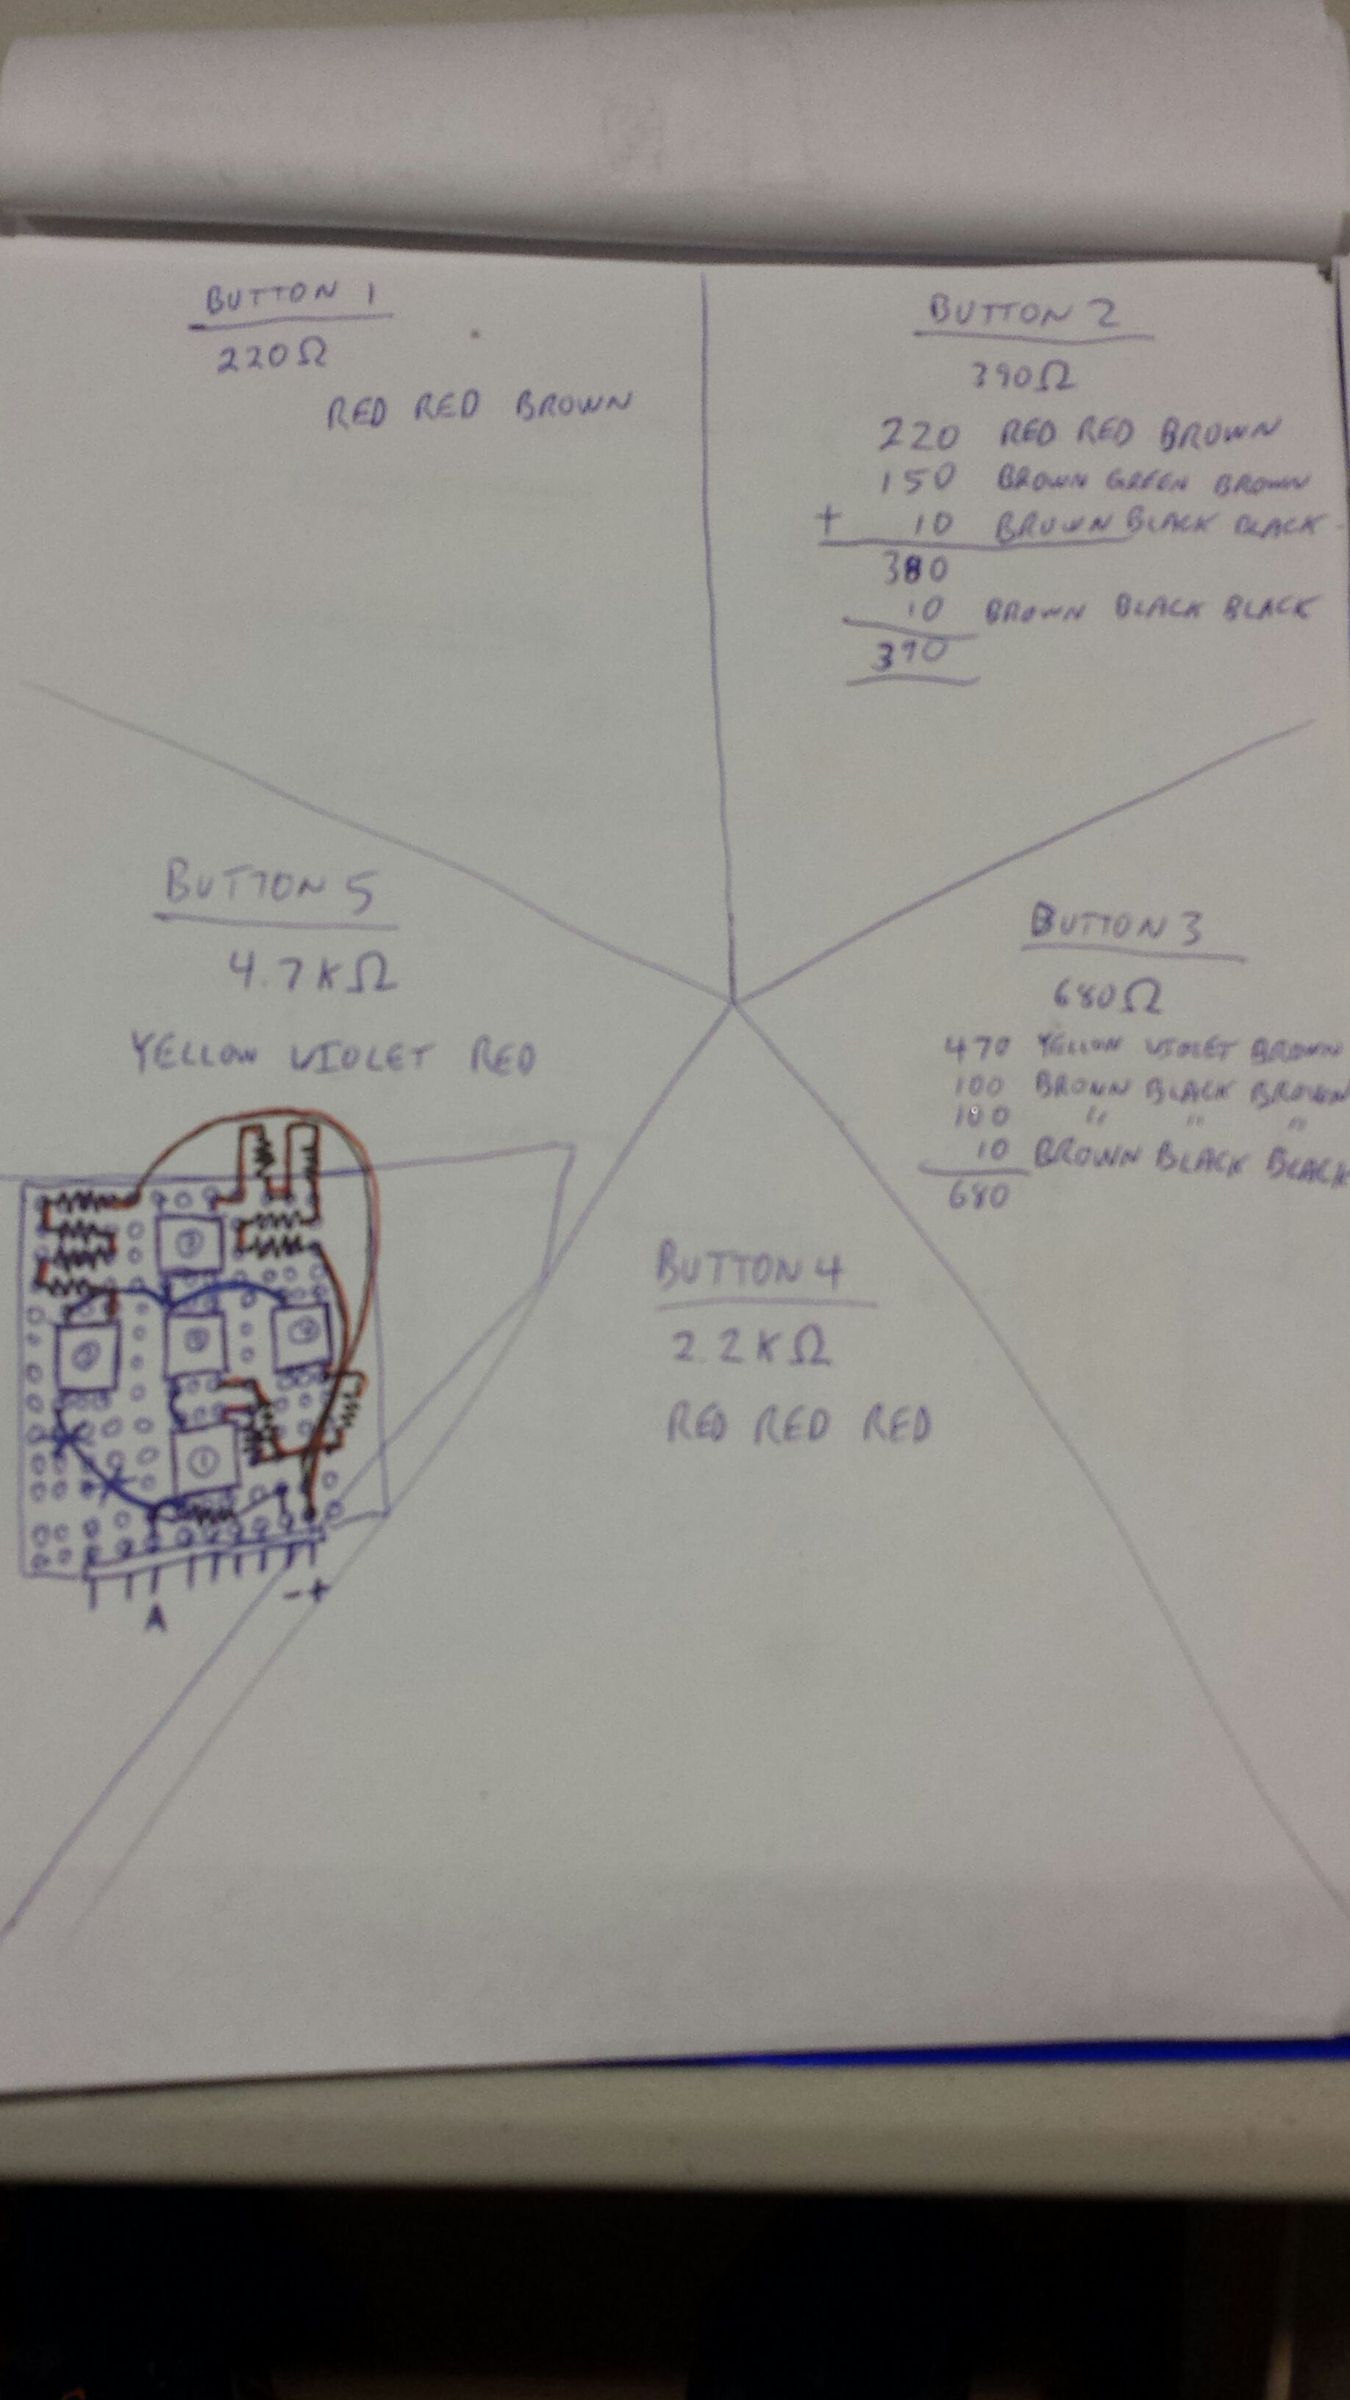 BUTTON 1
220Ω
RED RED BROWN
BUTTON 2
390Ω
220 RED RED BROWN
150 BROWN GREEN BROWN
+ 10 BROWN BLACK BLACK
380
10 BROWN BLACK BLACK
390
BUTTON 3
680Ω
470 YELLOW VIOLET BROWN
100 BROWN BLACK BROWN
100 " " "
10 BROWN BLACK BLACK
680
BUTTON 4
2.2KΩ
RED RED RED
BUTTON 5
4.7KΩ
YELLOW VIOLET RED
1
A
- +